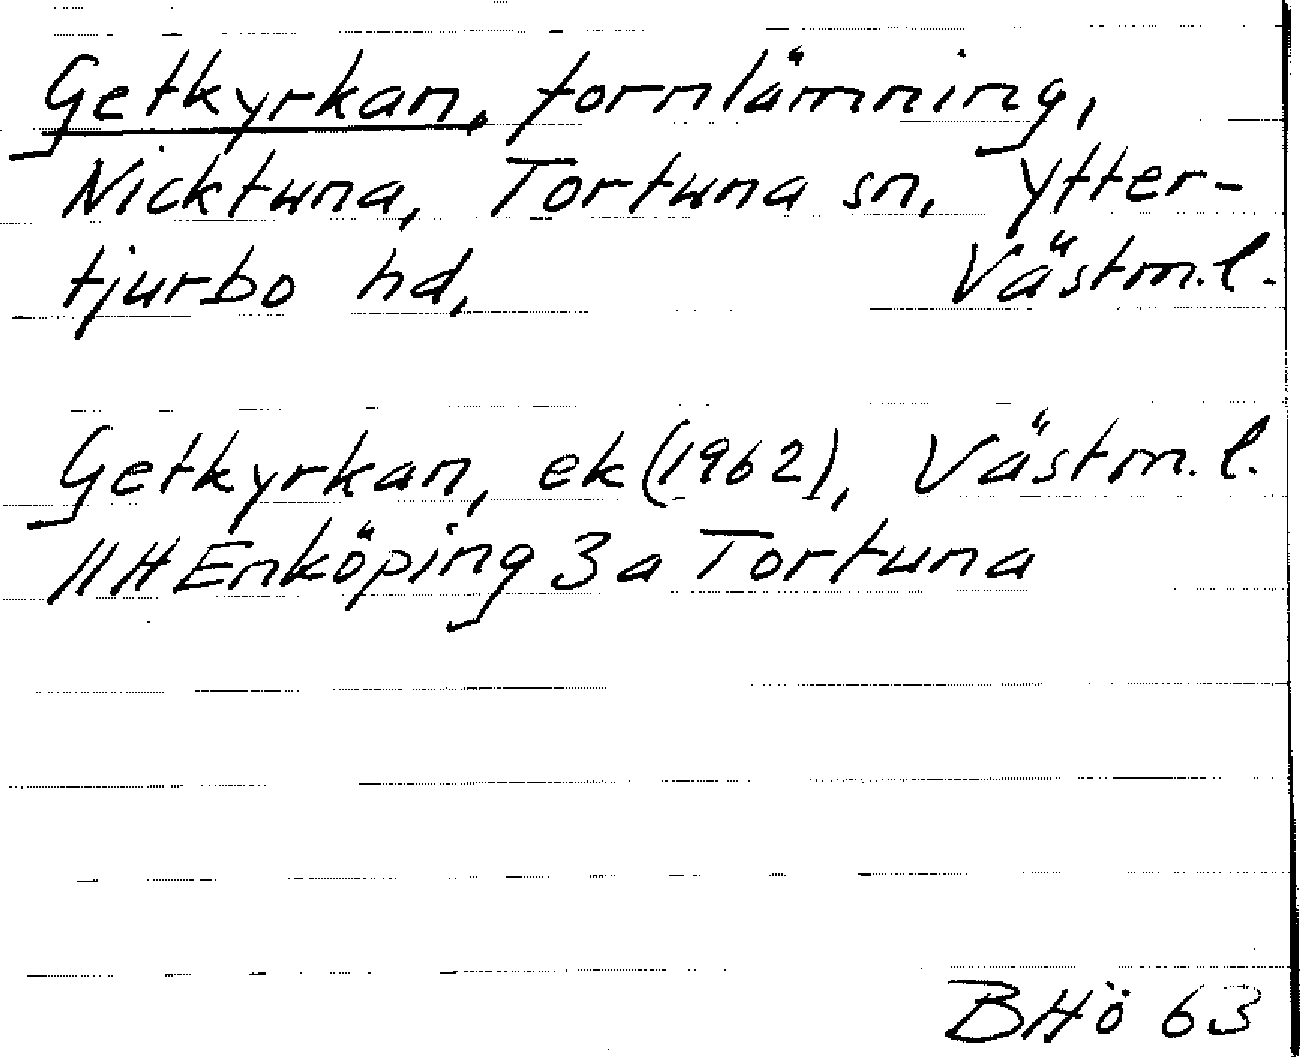 Getkyrkan, fornlämning,
Nicktuna, Tortuna sn, Ytter-
tjurbo hd, Västm.l.
Getkyrkan, ek (1962), Västm.l.
11H Enköping 3a Tortuna
BHö 63